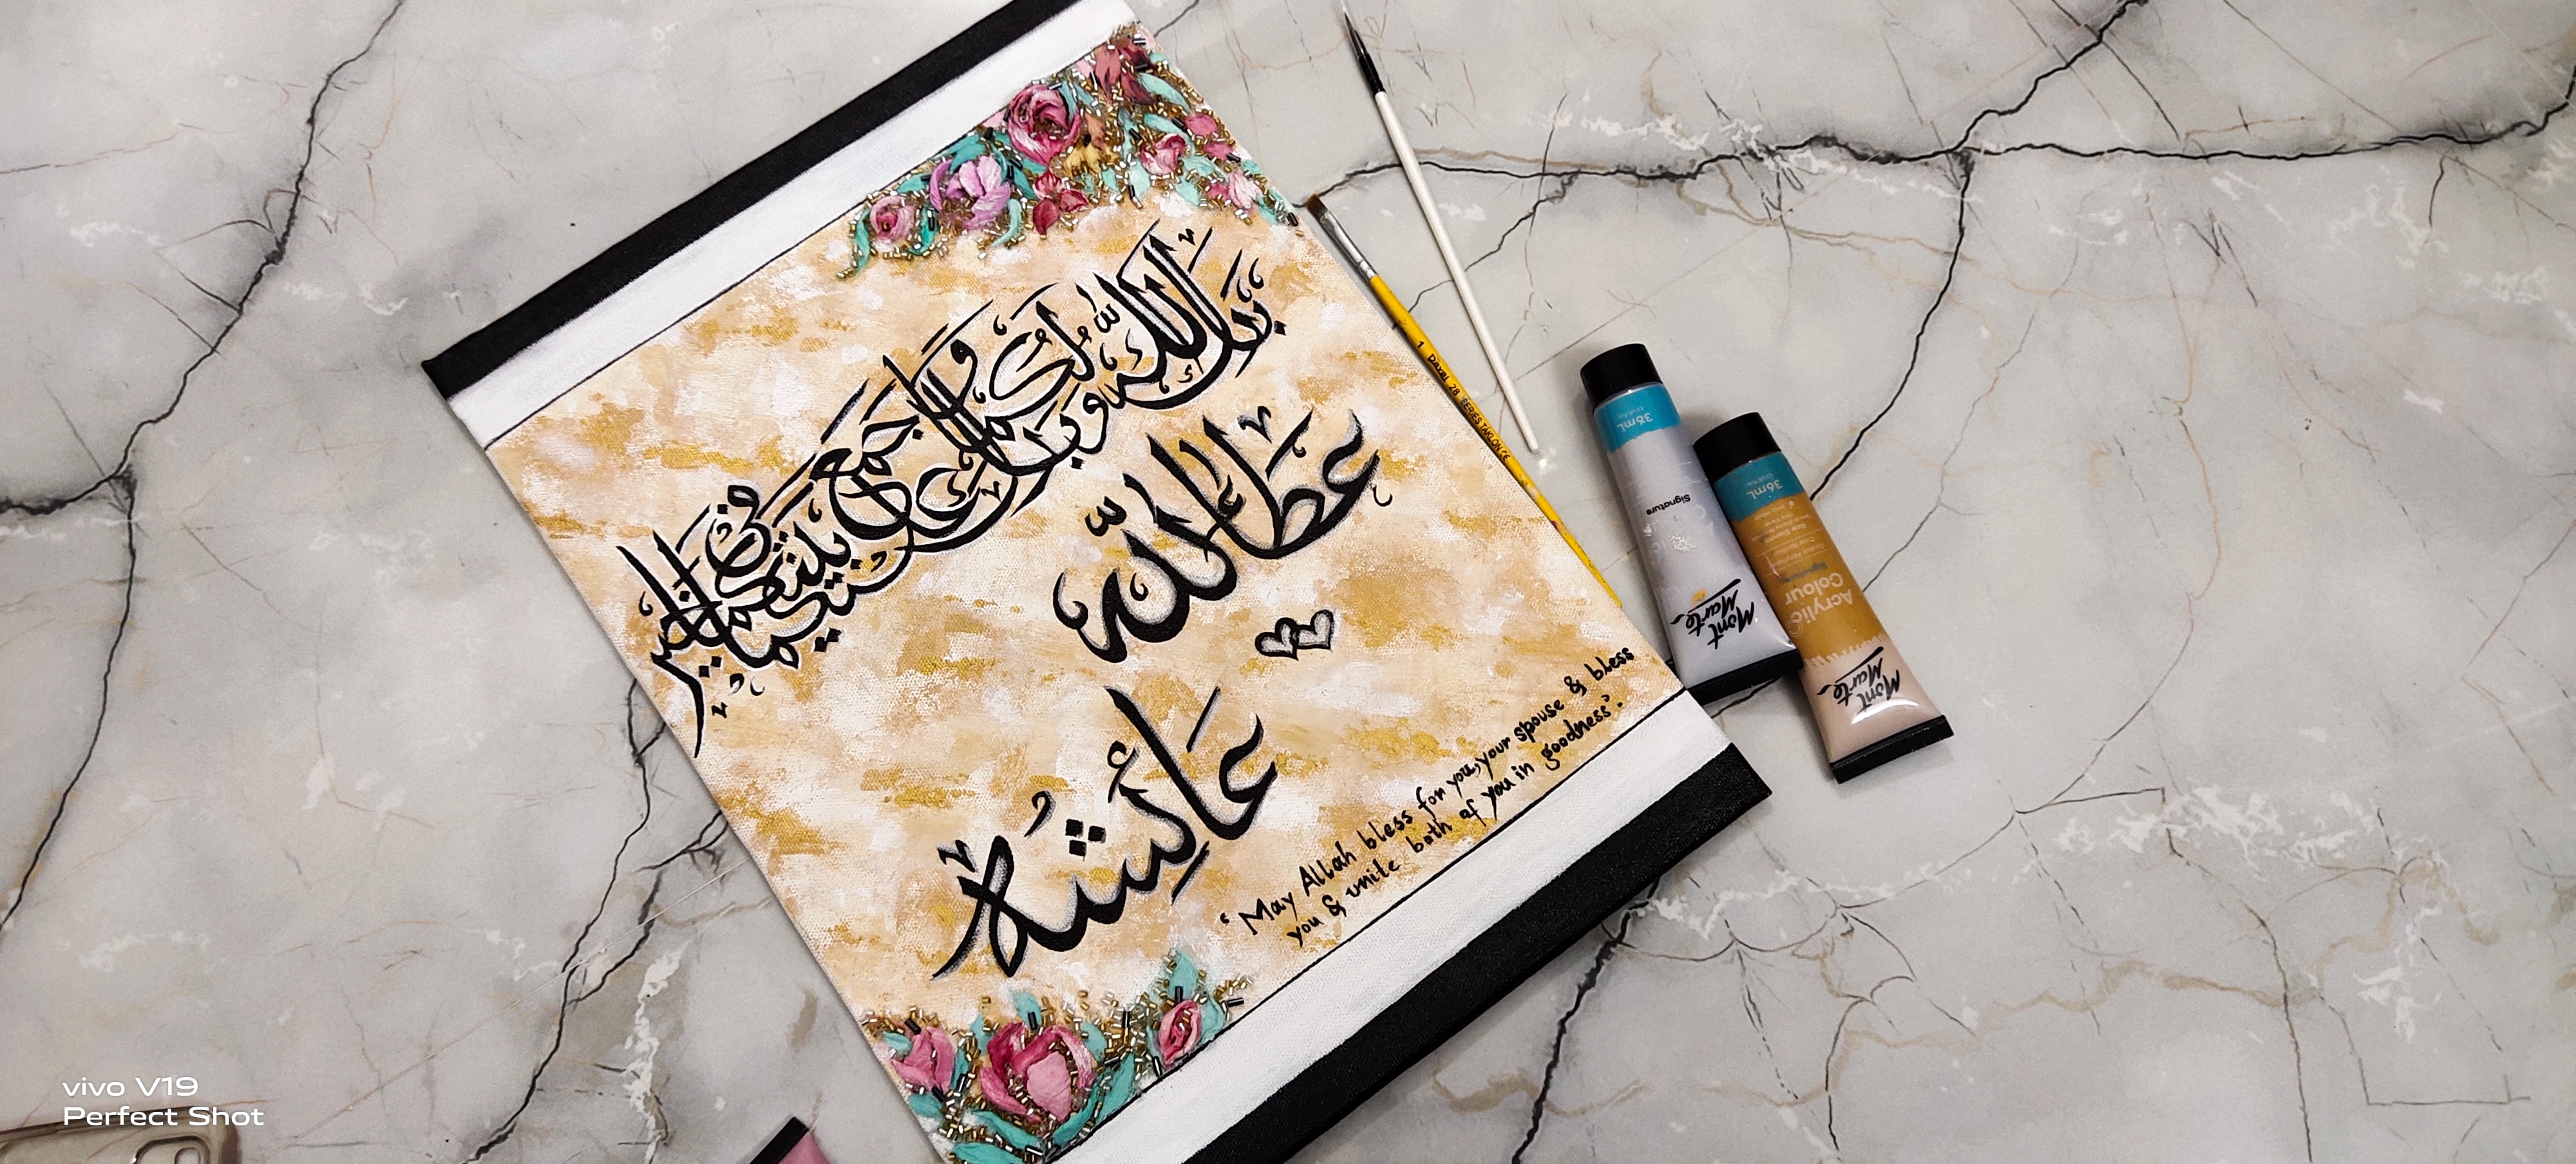 بارك الله لكما وبارك عليكما وجمع بينكما في خير
عطاالله
عائشه
'May Allah bless for you, your spouse & bless
you & unite both of you in goodness'.
1 Daxal 28 SERIES TAKLON CE
36mL
Signature
Mont
Marte
36mL
Signature
Acrylic
Colour
Mont
Marte
vivo V19
Perfect Shot